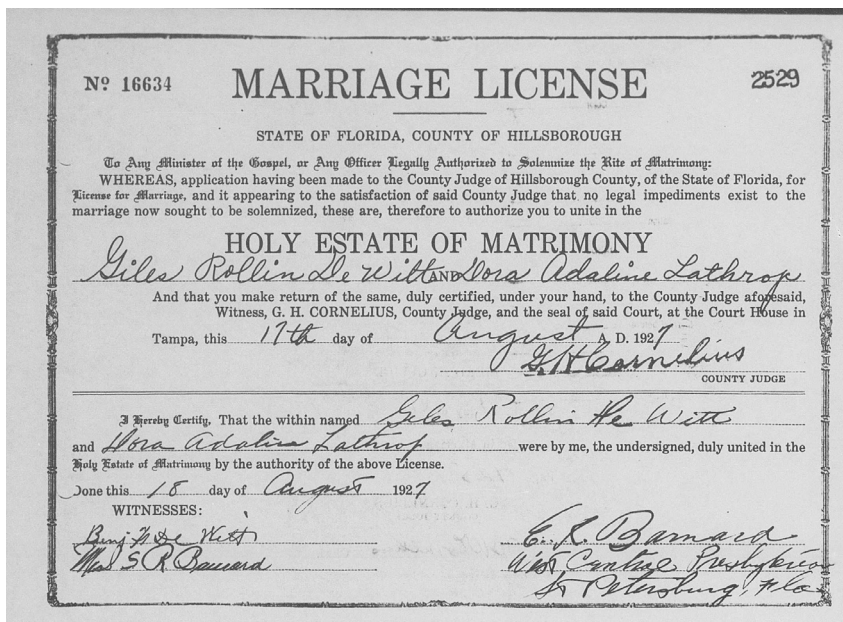 No 16634 MARRIAGE LICENSE 2529
STATE OF FLORIDA, COUNTY OF HILLSBOROUGH
To Any Minister of the Gospel, or Any Officer Legally Authorized to Solemnize the Rite of Matrimony:
WHEREAS, application having been made to the County Judge of Hillsborough County, of the State of Florida, for
License for Marriage, and it appearing to the satisfaction of said County Judge that no legal impediments exist to the
marriage now sought to be solemnized, these are, therefore to authorize you to unite in the
HOLY ESTATE OF MATRIMONY
Giles Rollin De Witt AND Dora Adaline Lathrop
And that you make return of the same, duly certified, under your hand, to the County Judge aforesaid,
Witness, G. H. CORNELIUS, County Judge, and the seal of said Court, at the Court House in
Tampa, this 17th day of August A. D. 1927
G. H Cornelius
COUNTY JUDGE
I Hereby Certify, That the within named Giles Rollin De Witt
and Dora Adaline Lathrop were by me, the undersigned, duly united in the
Holy Estate of Matrimony by the authority of the above License.
Done this 18 day of August 1927
WITNESSES:
Benj De Witt E. R. Barnard
Mrs S R Barnard West Central Presbyterian
St Petersburg, Fla